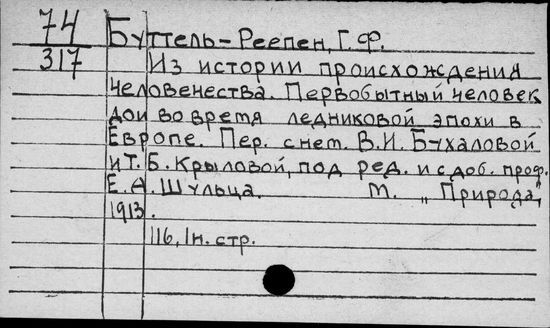 74
317
Буттель-Реепен, Г. Ф.
Из истории происхождения
человечества. Первобытный человек
до и во время ледниковой эпохи в
Европе. Пер. с нем. В. И. Бухаловой
и Т. Б. Крыловой, под ред. и с доб. проф.
Е. А. Шульца. М. „Природа",
1913.
116, 1 н. стр.